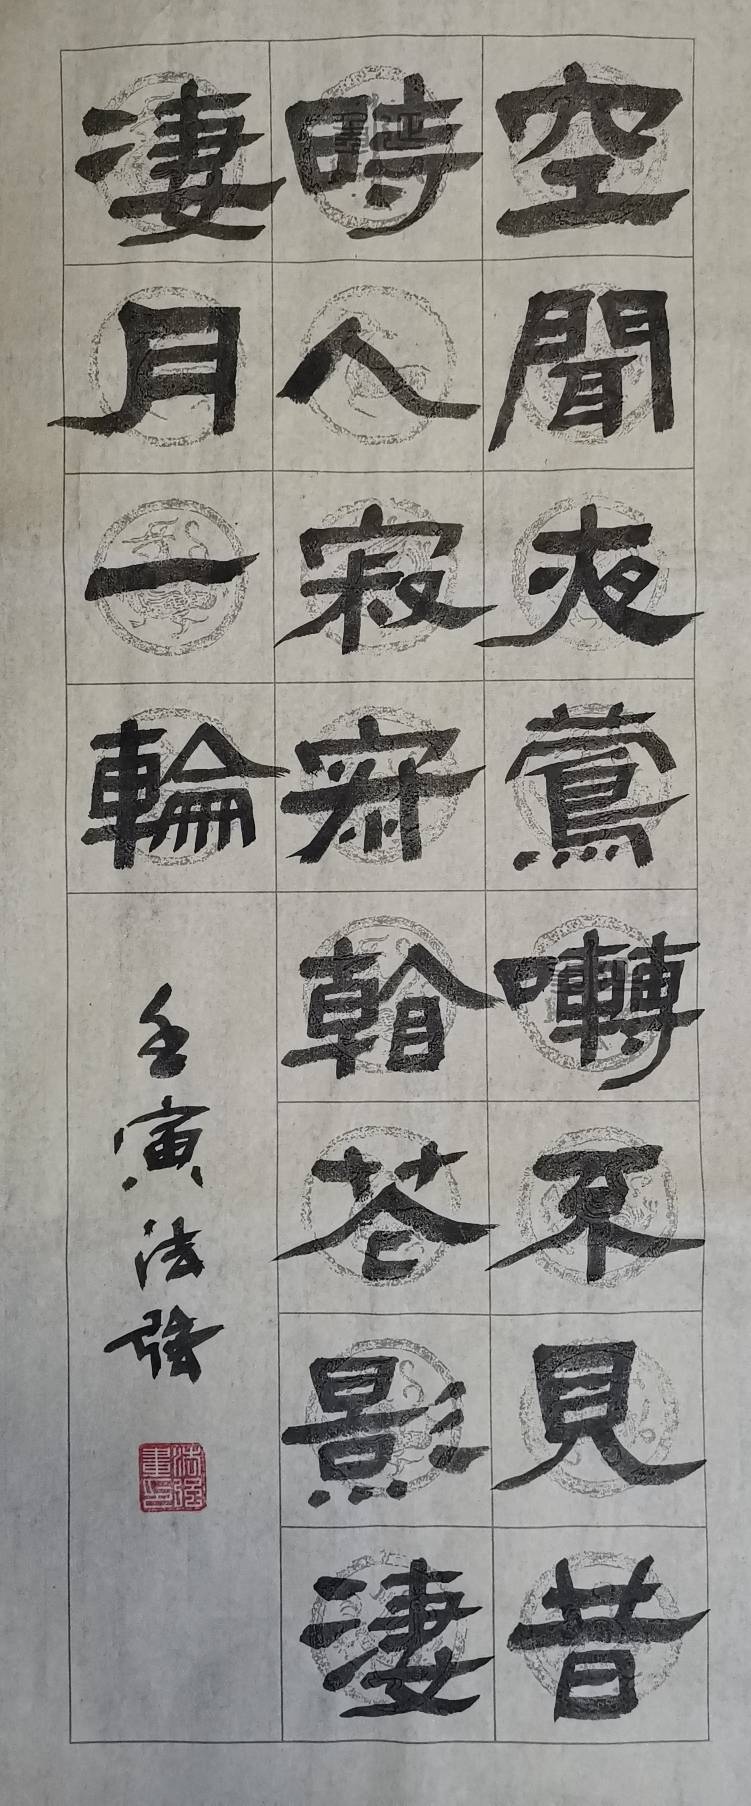 空聞夜鶯囀不見昔
時人寂寂花影淒
淒月一輪
壬寅法強
法強書印